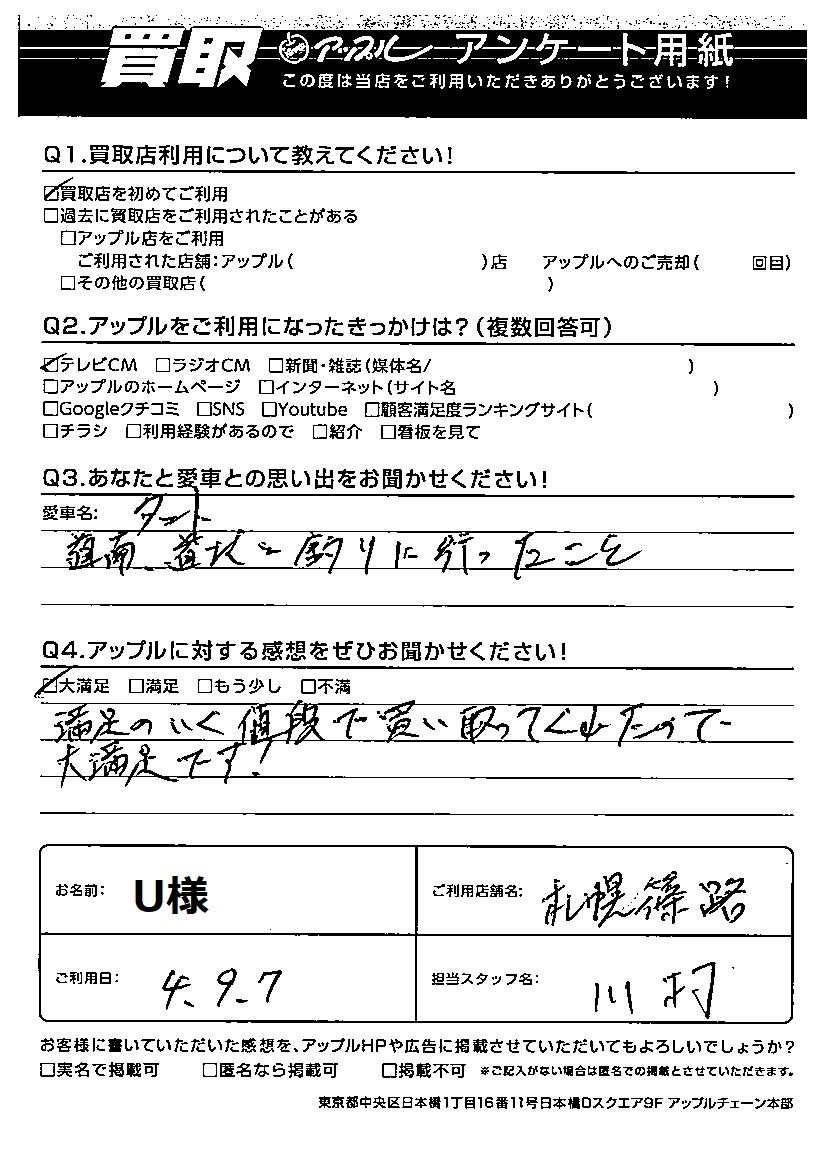 買取 アップル アンケート用紙
この度は当店をご利用いただきありがとうございます!
Q1.買取店利用について教えてください!
☑買取店を初めてご利用
□過去に買取店をご利用されたことがある
□アップル店をご利用
ご利用された店舗:アップル( )店 アップルへのご売却( 回目)
□その他の買取店( )
Q2.アップルをご利用になったきっかけは?(複数回答可)
☑テレビCM □ラジオCM □新聞・雑誌(媒体名/ )
□アップルのホームページ □インターネット(サイト名 )
□Googleクチコミ □SNS □Youtube □顧客満足度ランキングサイト( )
□チラシ □利用経験があるので □紹介 □看板を見て
Q3.あなたと愛車との思い出をお聞かせください!
愛車名: タント
道南、道北と釣りに行ったこと
Q4.アップルに対する感想をぜひお聞かせください!
☑大満足 □満足 □もう少し □不満
満足のいく値段で買い取ってくれたので
大満足です!
お名前: U様 ご利用店舗名: 札幌篠路
ご利用日: 4.9.7 担当スタッフ名: 川村
お客様に書いていただいた感想を、アップルHPや広告に掲載させていただいてもよろしいでしょうか?
□実名で掲載可 □匿名なら掲載可 □掲載不可 ※ご記入がない場合は匿名での掲載とさせていただきます。
東京都中央区日本橋1丁目16番11号日本橋Dスクエア9F アップルチェーン本部